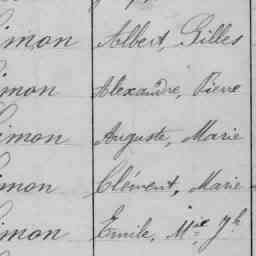 Simon Albert, Gilles
Simon Alexandre, Pierre
Simon Auguste, Marie
Simon Clément, Marie
Simon Emile, Mie Jh